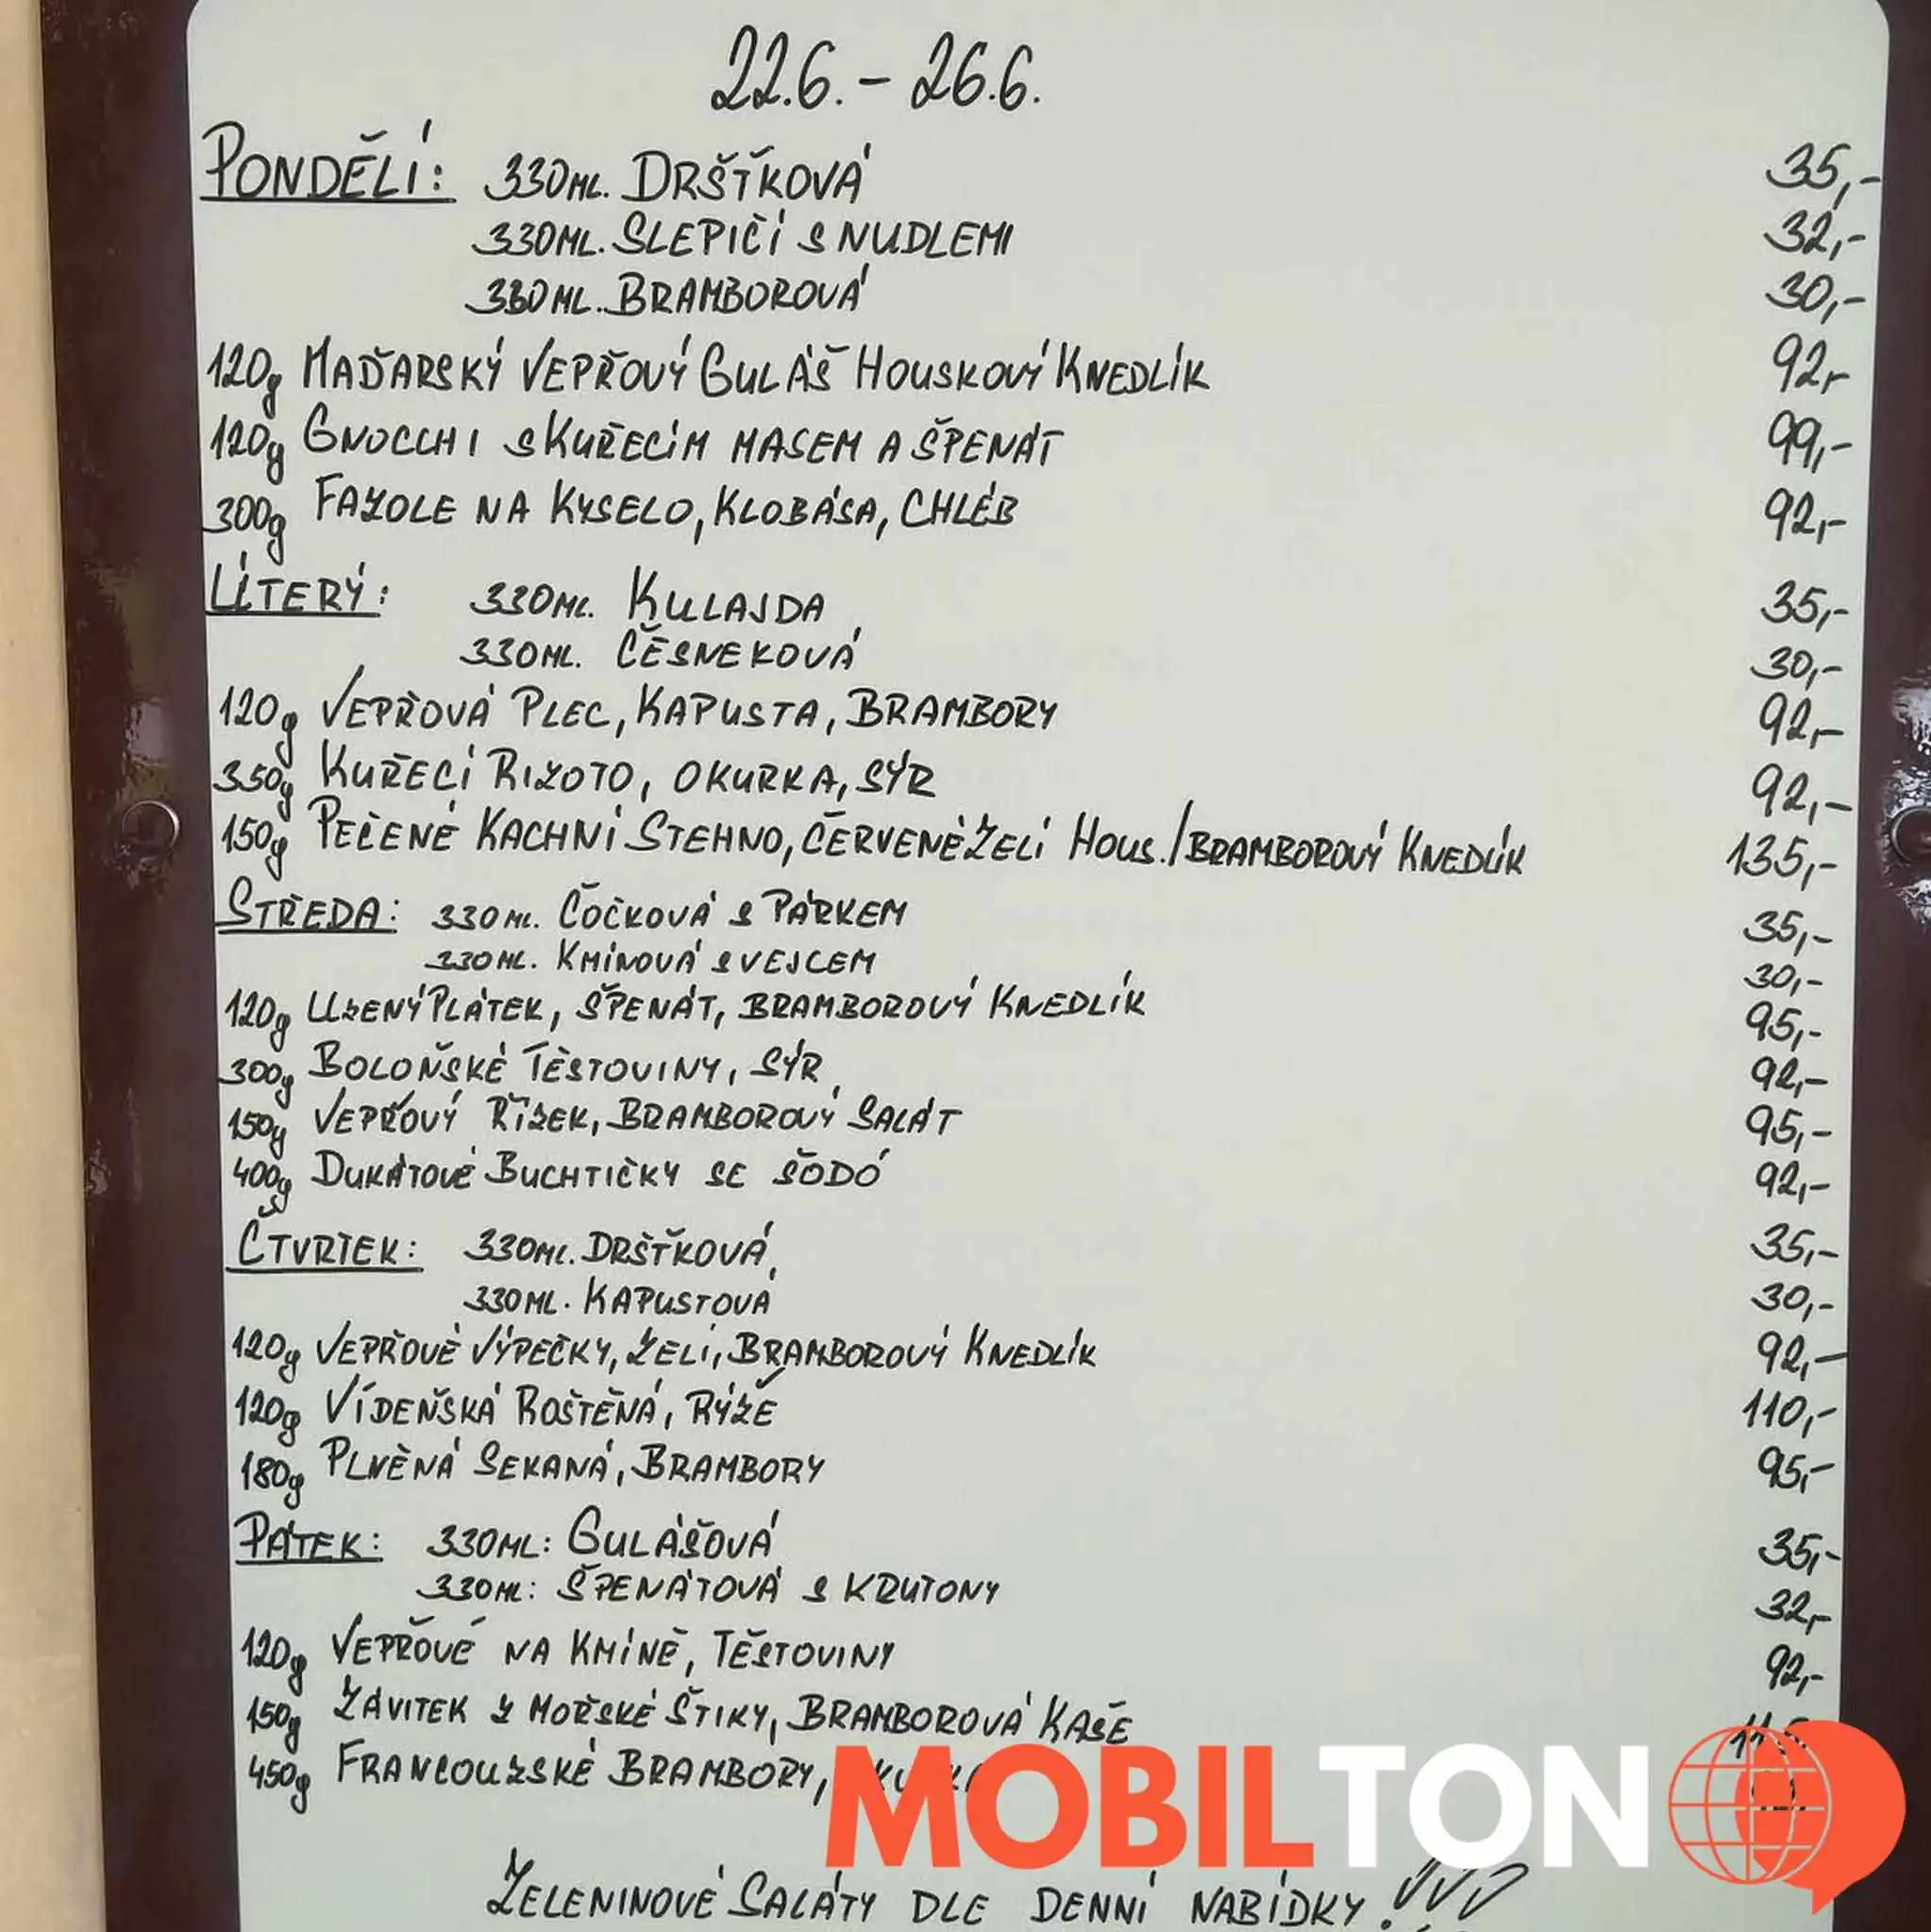 22.6. - 26.6.
PONDĚLÍ: 330ML. DRŠŤKOVÁ 35,-
330ML. SLEPIČÍ S NUDLEMI 32,-
330ML. BRAMBOROVÁ 30,-
120g MAĎARSKÝ VEPŘOVÝ GULÁŠ HOUSKOVÝ KNEDLÍK 92,-
120g GNOCCHI S KUŘECÍM MASEM A ŠPENÁT 99,-
300g FAZOLE NA KYSELO, KLOBÁSA, CHLÉB 92,-
ÚTERÝ: 330ML. KULAJDA 35,-
330ML. ČESNEKOVÁ 30,-
120g VEPŘOVÁ PLEC, KAPUSTA, BRAMBORY 92,-
350g KUŘECÍ RIZOTO, OKURKA, SÝR 92,-
150g PEČENÉ KACHNÍ STEHNO, ČERVENÉ ZELÍ HOUS./BRAMBOROVÝ KNEDLÍK 135,-
STŘEDA: 330ML. ČOČKOVÁ S PÁRKEM 35,-
330ML. KMÍNOVÁ S VEJCEM 30,-
120g UZENÝ PLÁTEK, ŠPENÁT, BRAMBOROVÝ KNEDLÍK 95,-
300g BOLOŇSKÉ TĚSTOVINY, SÝR 92,-
150g VEPŘOVÝ ŘÍZEK, BRAMBOROVÝ SALÁT 95,-
400g DUKÁTOVÉ BUCHTIČKY SE ŠODÓ 92,-
ČTVRTEK: 330ML. DRŠŤKOVÁ 35,-
330ML. KAPUSTOVÁ 30,-
120g VEPŘOVÉ VÝPEČKY, ZELÍ, BRAMBOROVÝ KNEDLÍK 92,-
120g VÍDEŇSKÁ ROŠTĚNÁ, RÝŽE 110,-
180g PLNĚNÁ SEKANÁ, BRAMBORY 95,-
PÁTEK: 330ML: GULÁŠOVÁ 35,-
330ML: ŠPENÁTOVÁ S KRUTONY 32,-
120g VEPŘOVÉ NA KMÍNĚ, TĚSTOVINY 92,-
150g ZÁVITEK Z MOŘSKÉ ŠTIKY, BRAMBOROVÁ KAŠE
450g FRANCOUZSKÉ BRAMBORY,
MOBILTON
ZELENINOVÉ SALÁTY DLE DENNÍ NABÍDKY!!!